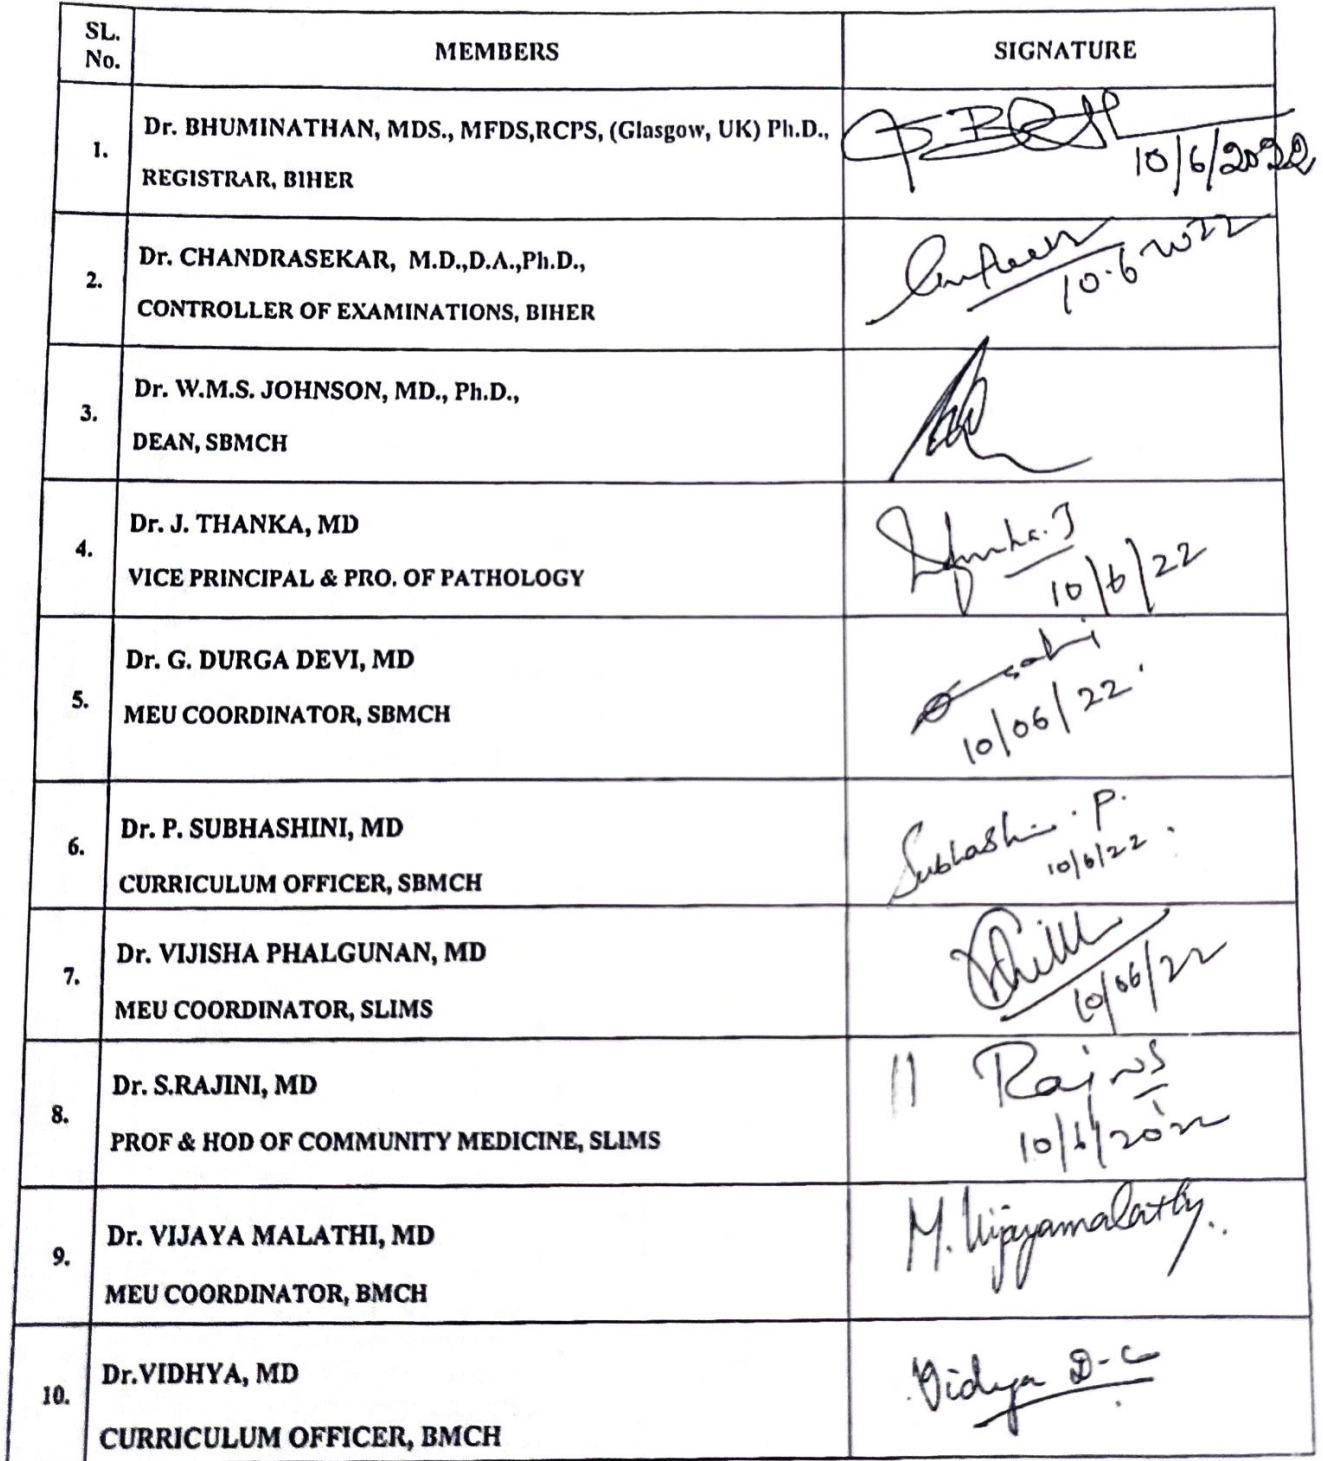 SL. No. MEMBERS SIGNATURE
1. Dr. BHUMINATHAN, MDS., MFDS,RCPS, (Glasgow, UK) Ph.D.,
REGISTRAR, BIHER
10/6/2022
2. Dr. CHANDRASEKAR, M.D.,D.A.,Ph.D.,
CONTROLLER OF EXAMINATIONS, BIHER
10.6.2022
3. Dr. W.M.S. JOHNSON, MD., Ph.D.,
DEAN, SBMCH
4. Dr. J. THANKA, MD
VICE PRINCIPAL & PRO. OF PATHOLOGY
10/6/22
5. Dr. G. DURGA DEVI, MD
MEU COORDINATOR, SBMCH
10/06/22
6. Dr. P. SUBHASHINI, MD
CURRICULUM OFFICER, SBMCH
Subhashini . P.
10/6/22
7. Dr. VIJISHA PHALGUNAN, MD
MEU COORDINATOR, SLIMS
10/06/22
8. Dr. S.RAJINI, MD
PROF & HOD OF COMMUNITY MEDICINE, SLIMS
10/6/2022
9. Dr. VIJAYA MALATHI, MD
MEU COORDINATOR, BMCH
M. Vijayamalathy
10. Dr.VIDHYA, MD
CURRICULUM OFFICER, BMCH
Vidya D-C